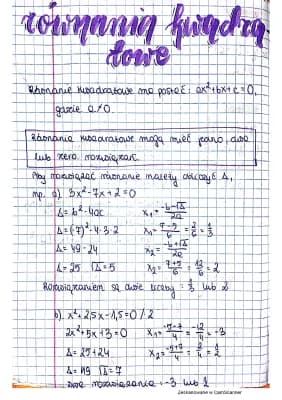 równania kwadra-
towe
Równanie kwadratowe ma postać: ax²+bx+c=0,
gdzie a≠0
Równanie kwadratowe mogą mieć jedno, dwa
lub zero rozwiązań.
Aby rozwiązać równanie należy obliczyć Δ,
np. a) 3x²-7x+2=0
Δ=b²-4ac x₁=(-b-√Δ)/2a
Δ=(-7)²-4·3·2 x₁=(7-5)/6=2/6=1/3
Δ=49-24 x₂=(-b+√Δ)/2a
Δ=25 √Δ=5 x₂=(7+5)/6=12/6=2
Rozwiązaniem są dwie liczby: 1/3 lub 2
b) x²+2,5x-1,5=0 /2
2x²+5x+3=0 x₁=(-5-7)/4=-12/4=-3
Δ=25+24 x₂=(-5+7)/4=2/4=1/2
Δ=49 √Δ=7
Dwa rozwiązania: -3 lub 1/2
Zeskanowane w CamScanner